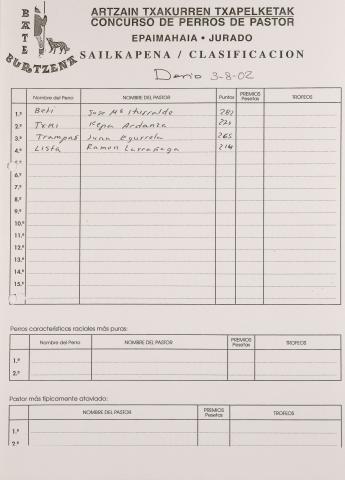 BATE
BURTZENA
ARTZAIN TXAKURREN TXAPELKETAK
CONCURSO DE PERROS DE PASTOR
EPAIMAHAIA • JURADO
SAILKAPENA / CLASIFICACION
Derio 3-8-02
Nombre del Perro NOMBRE DEL PASTOR Puntos PREMIOS Pesetas TROFEOS
1.º Beti Jose Mª Iturralde
2.º Txiki Kepa Ardanza
3.º Trampas Juan Egurrola 265
4.º Lista Ramon Larrañaga 214
6.º
7.º
8.º
9.º
10.º
11.º
12.º
13.º
14.º
15.º
Perros características raciales más puras:
Nombre del Perro NOMBRE DEL PASTOR PREMIOS Pesetas TROFEOS
1.º
2.º
Pastor más típicamente ataviado:
NOMBRE DEL PASTOR PREMIOS Pesetas TROFEOS
1.º
2.º